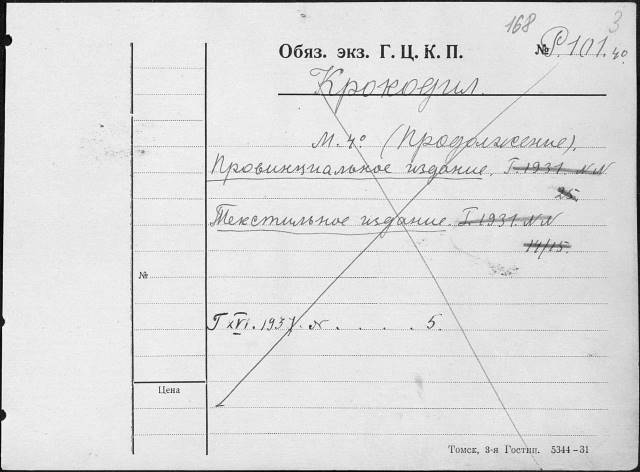 168 3
Обяз. экз. Г. Ц. К. П. № Р.101.4°
Крокодил.
М. 4° (Продолжение).
Провинциальное издание. Г 1931. N.N
25.
Текстильное издание. Г 1931. N.N
14/15.
№
Г XVI. 1937. N . . . . . 5.
Цена
Томск, 3-я Гостип. 5344–31